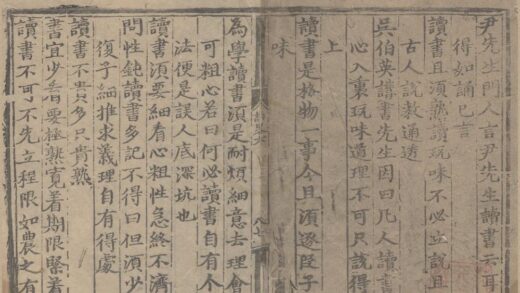 尹先生門人言尹先生讀書云耳
得如誦已言
讀書且須熟讀玩味不必立說且
古人說教通透
吳伯英講書先生因曰凡人讀書
心入裏玩味道理不可只說得
上
讀書是格物一事今且須逐段子
味
為學讀書須是耐煩細意去理會
可粗心若曰何必讀書自有个
法便是誤人底深坑也
讀書須要細看心粗性急終不濟
問性鈍讀書多記不得曰但須少
復子細推求義理自有得處
讀書不貴多只貴熟
書宜少看要極熟寬著期限緊著
讀書不可不先立程限如農之有